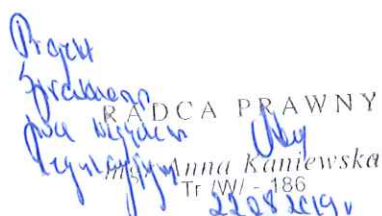 Projekt
sprawdzono
pod względem
RADCA PRAWNY
mgr Anna Kaniewska
Tr /W/ - 186
22.08.2019r